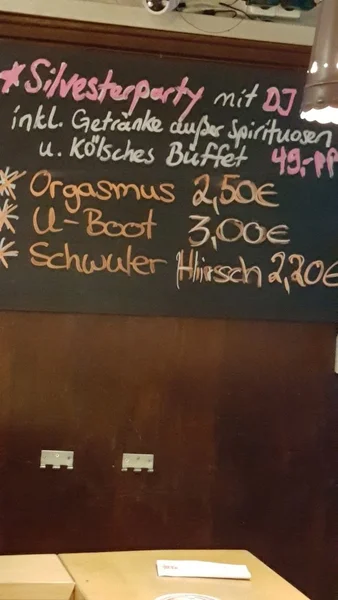 *Silvesterparty mit DJ
inkl. Getränke außer Spirituosen
u. Kölsches Büffet 49,- PP
* Orgasmus 2,50€
* U-Boot 3,00€
* Schwuler Hirsch 2,20€